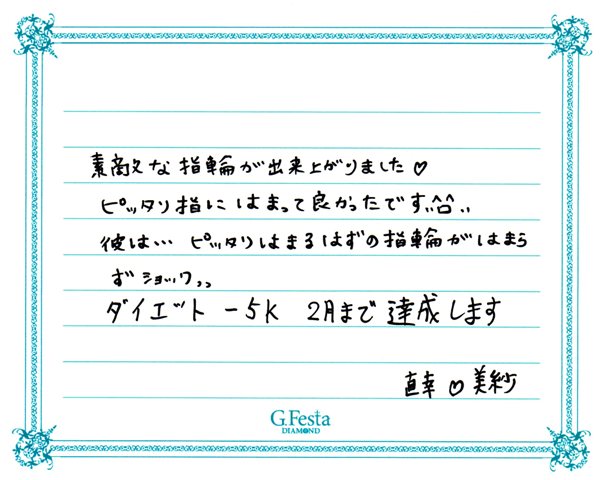 素敵な指輪が出来上がりました♡
ピッタリ指にはまって良かったです..^^..
彼は… ピッタリはまるはずの指輪がはまら
ずショック,,
ダイエット -5K 2月まで達成します
直幸 ♡ 美紗
G.Festa
DIAMOND